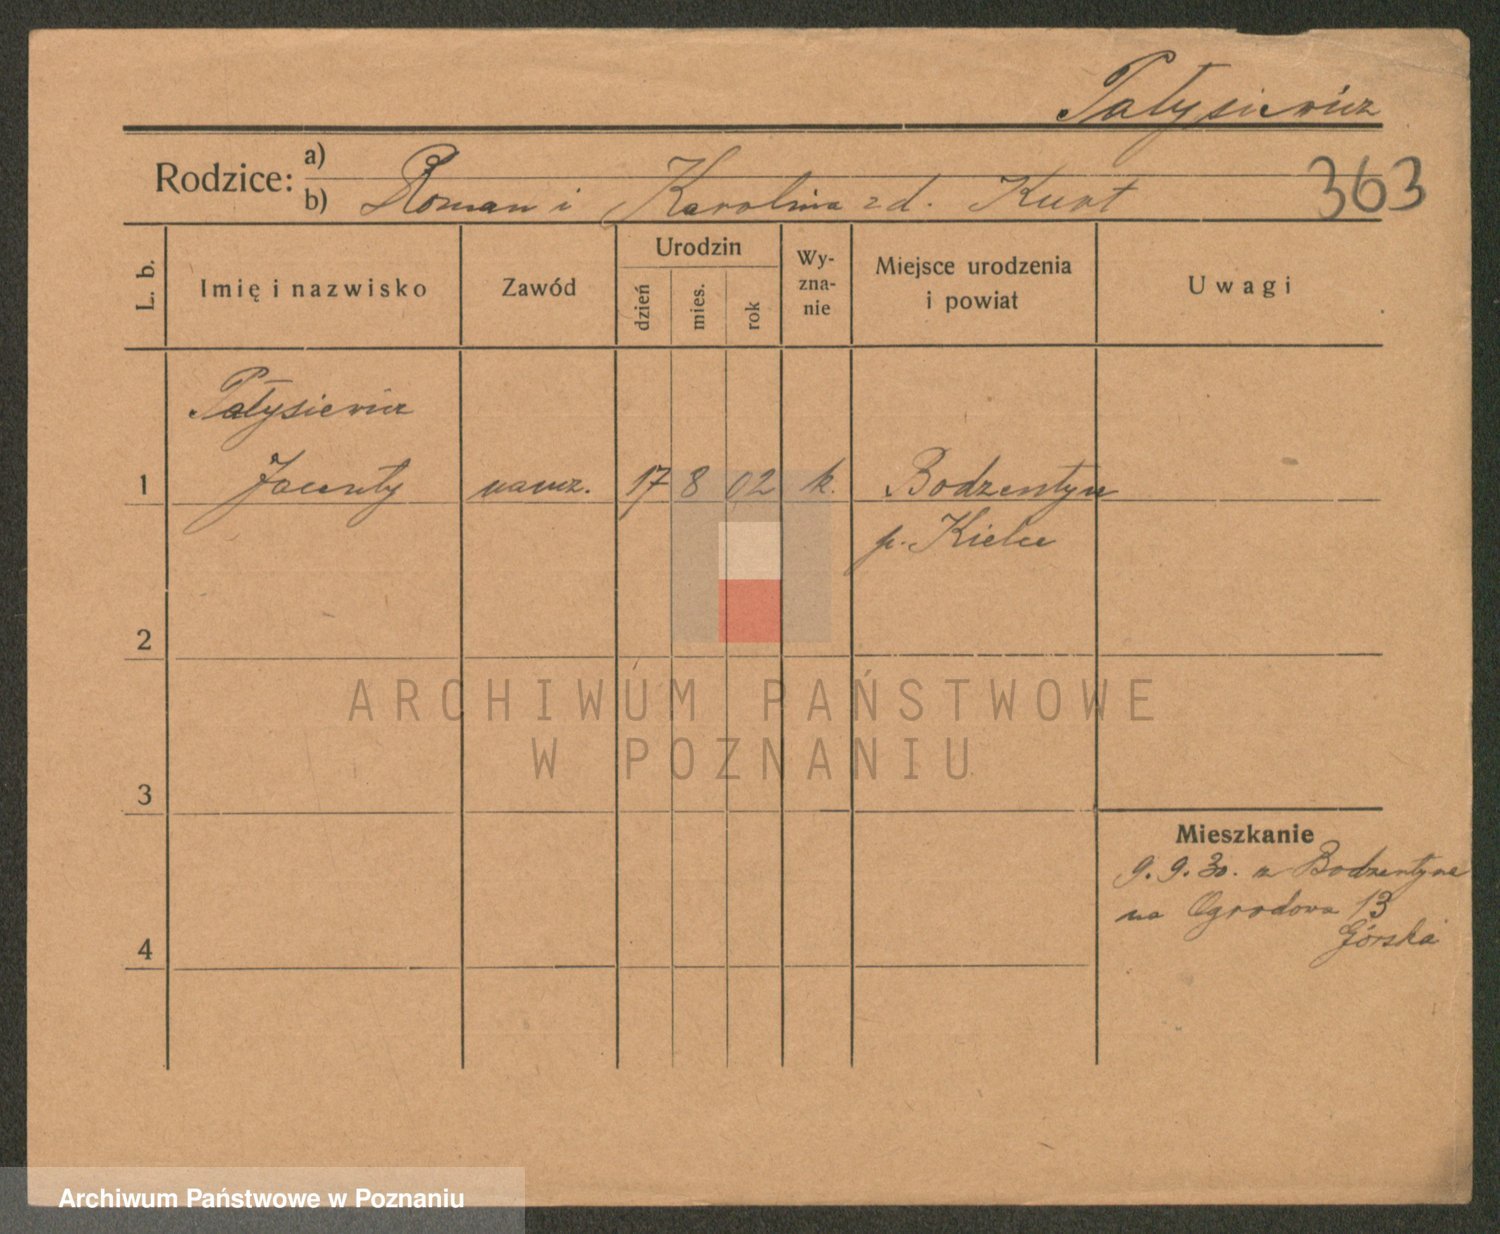 Pałysiewicz
Rodzice: a)
b) Roman i Karolina z d. Kurt
363
L. b.
Imię i nazwisko
Zawód
Urodzin
dzień
mies.
rok
Wy-
zna-
nie
Miejsce urodzenia
i powiat
Uwagi
Pałysiewicz
1 Jacenty naucz. 17 8 02 k. Bodzentyn
p. Kielce
2
3
4
Mieszkanie
9.9.30. z Bodzentyna
na Ogrodowa 13
Górska
ARCHIWUM PAŃSTWOWE
W POZNANIU
Archiwum Państwowe w Poznaniu